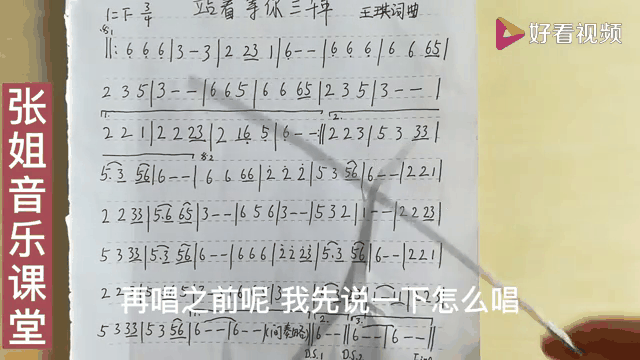 1=下 3/4 站着等你三千年 王琪词曲
好看视频
‖: 6 6 6 | 3 - 3 | 2 23 1 | 6 - - | 6 6 6 | 6 6 65 |
2 3 5 | 3 - - | 6 6 5 | 6 6 65 | 2 3 5 | 3 - - |
2 2 1 | 2 2 23 | 2 16 5 | 6 - - :‖ 2 2 3 | 5 3 33 |
5·3 56 | 6 - - | 6 6 66 | 2 2 2 | 5 3 56 | 6 - - | 2 2 1 |
2 2 33 | 5·6 65 | 3 - - | 6 5 6 | 3 - - | 5 3 2 | 1 - - | 2 2 23 |
5 3 33 | 5·3 56 | 6 - - | 6 6 6 | 2 2 23 | 5·3 56 | 6 - - | 2 2 1 |
再唱之前呢 我先说一下怎么唱
5 3 33 | 5 3 56 | 6 - - | 6 - -
D.S.1 D.S.2
张姐音乐课堂